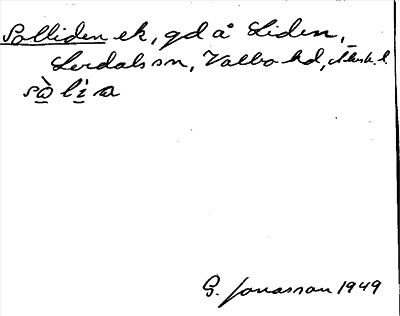 Solliden ek, gd å Liden,
Lerdals sn, Valbo hd, Älvsb. l.
sò̱ li̱ a
G. Jonasson 1949